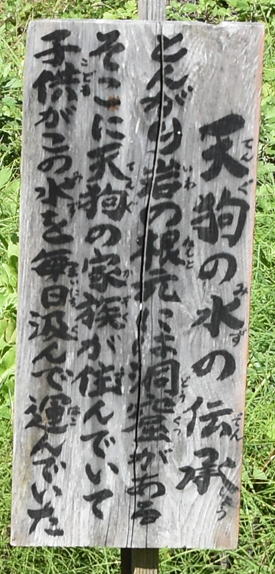 天狗の水の伝承
とんがり岩の根元には洞窟がある
そこに天狗の家族が住んでいて
子供がこの水を毎日汲んで運んでいた